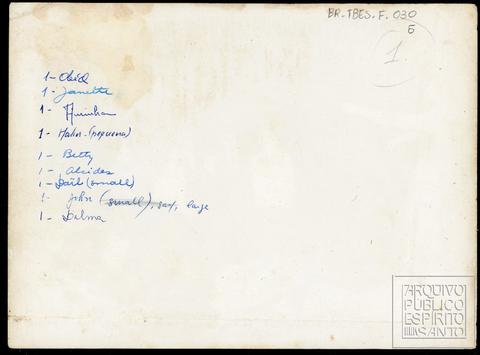 BR.TBES.F.030
6
1
1- Obid
1- Janette
1-
1- Malu-(pequena)
1- Betty
1- Alcides
1- Dail (small)
1- John (small), sax, large
1- Dalma
ARQUIVO
PÚBLICO
ESPÍRITO
SANTO